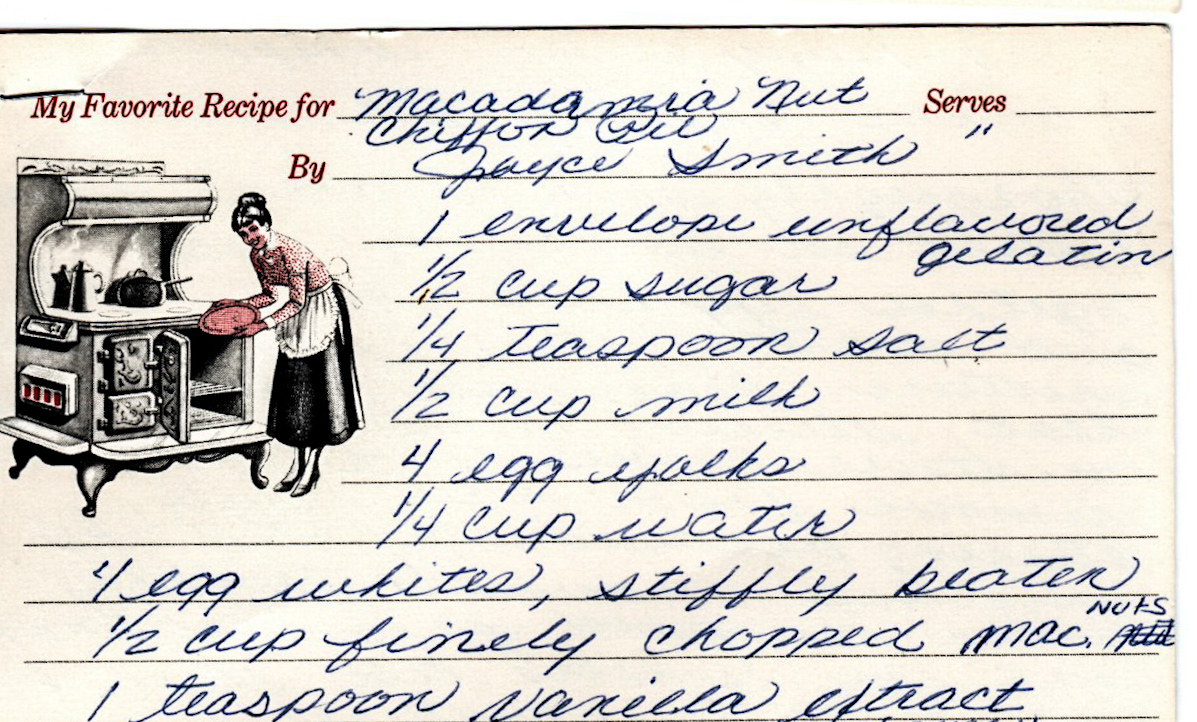 My Favorite Recipe for Macadamia Nut Serves
Chiffon Pie "
By Joyce Smith
1 envelope unflavored
gelatin
1/2 cup sugar
1/4 teaspoon salt
1/2 cup milk
4 egg yolks
1/4 cup water
4 egg whites, stiffly beaten
1/2 cup finely chopped mac. NUTS
1 teaspoon vanilla extract